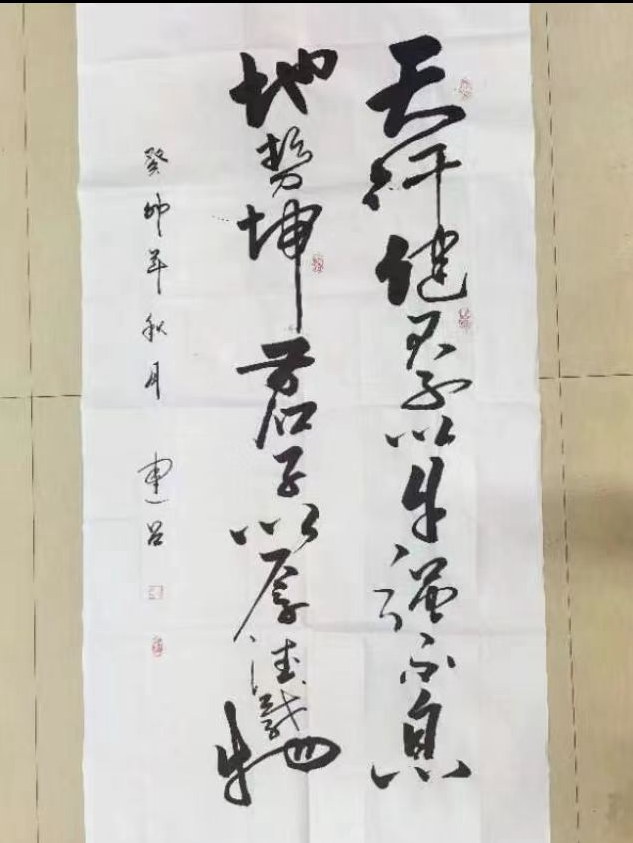 天行健君子以自强不息
地势坤君子以厚德载物
癸卯年秋月